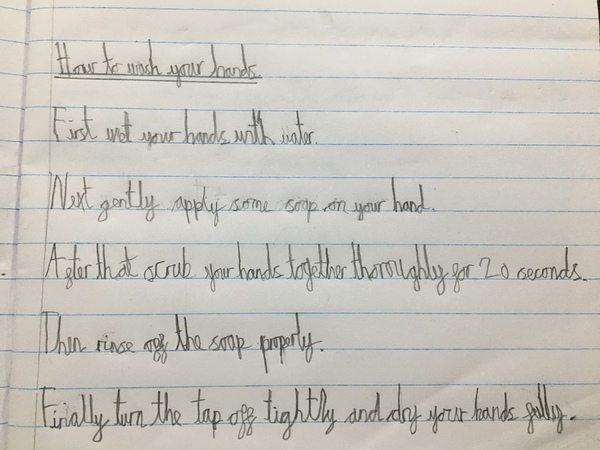 How to wash your hands
First wet your hands with water.
Next gently apply some soap on your hand.
After that scrub your hands together thoroughly for 20 seconds.
Then rinse off the soap properly.
Finially turn the tap off tightly and dry your hands fully.